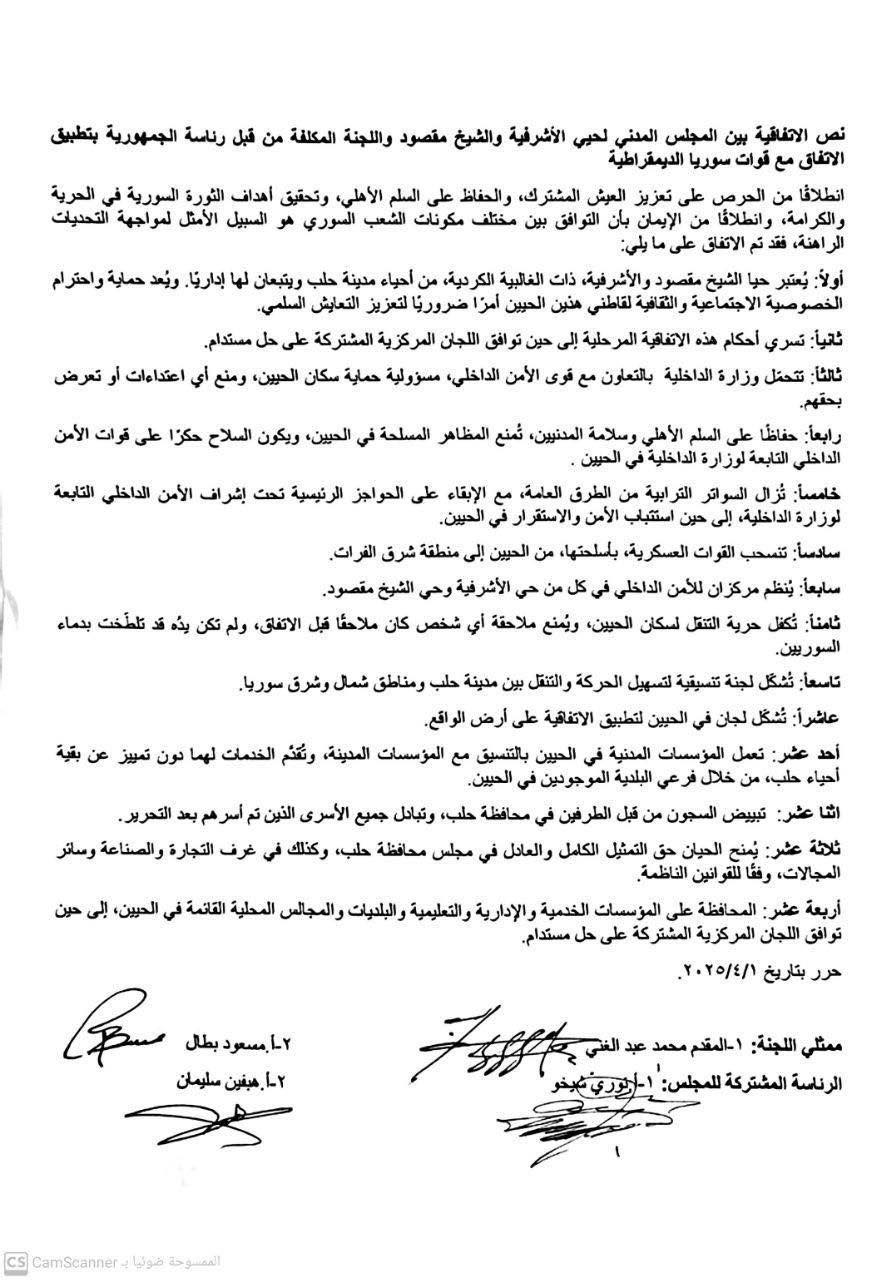 نص الاتفاقية بين المجلس المدني لحيي الأشرفية والشيخ مقصود واللجنة المكلفة من قبل رئاسة الجمهورية بتطبيق
الاتفاق مع قوات سوريا الديمقراطية
انطلاقًا من الحرص على تعزيز العيش المشترك، والحفاظ على السلم الأهلي، وتحقيق أهداف الثورة السورية في الحرية
والكرامة، وانطلاقًا من الإيمان بأن التوافق بين مختلف مكونات الشعب السوري هو السبيل الأمثل لمواجهة التحديات
الراهنة، فقد تم الاتفاق على ما يلي:
أولاً: يُعتبر حيا الشيخ مقصود والأشرفية، ذات الغالبية الكردية، من أحياء مدينة حلب ويتبعان لها إداريًا. ويُعد حماية واحترام
الخصوصية الاجتماعية والثقافية لقاطني هذين الحيين أمرًا ضروريًا لتعزيز التعايش السلمي.
ثانياً: تسري أحكام هذه الاتفاقية المرحلية إلى حين توافق اللجان المركزية المشتركة على حل مستدام.
ثالثاً: تتحمّل وزارة الداخلية بالتعاون مع قوى الأمن الداخلي، مسؤولية حماية سكان الحيين، ومنع أي اعتداءات أو تعرض
بحقهم.
رابعاً: حفاظًا على السلم الأهلي وسلامة المدنيين، تُمنع المظاهر المسلحة في الحيين، ويكون السلاح حكرًا على قوات الأمن
الداخلي التابعة لوزارة الداخلية في الحيين .
خامساً: تُزال السواتر الترابية من الطرق العامة، مع الإبقاء على الحواجز الرئيسية تحت إشراف الأمن الداخلي التابعة
لوزارة الداخلية، إلى حين استتباب الأمن والاستقرار في الحيين.
سادساً: تنسحب القوات العسكرية، بأسلحتها، من الحيين إلى منطقة شرق الفرات.
سابعاً: يُنظم مركزان للأمن الداخلي في كل من حي الأشرفية وحي الشيخ مقصود.
ثامناً: تُكفل حرية التنقل لسكان الحيين، ويُمنع ملاحقة أي شخص كان ملاحقًا قبل الاتفاق، ولم تكن يدُه قد تلطّخت بدماء
السوريين.
تاسعاً: تُشكّل لجنة تنسيقية لتسهيل الحركة والتنقل بين مدينة حلب ومناطق شمال وشرق سوريا.
عاشراً: تُشكّل لجان في الحيين لتطبيق الاتفاقية على أرض الواقع.
أحد عشر: تعمل المؤسسات المدنية في الحيين بالتنسيق مع المؤسسات المدينة، وتُقدَّم الخدمات لهما دون تمييز عن بقية
أحياء حلب، من خلال فرعي البلدية الموجودين في الحيين.
اثنا عشر: تبييض السجون من قبل الطرفين في محافظة حلب، وتبادل جميع الأسرى الذين تم أسرهم بعد التحرير.
ثلاثة عشر: يُمنح الحيان حق التمثيل الكامل والعادل في مجلس محافظة حلب، وكذلك في غرف التجارة والصناعة وسائر
المجالات، وفقًا للقوانين الناظمة.
أربعة عشر: المحافظة على المؤسسات الخدمية والإدارية والتعليمية والبلديات والمجالس المحلية القائمة في الحيين، إلى حين
توافق اللجان المركزية المشتركة على حل مستدام.
حرر بتاريخ ٢٠٢٥/٤/١.
ممثلي اللجنة: ١-المقدم محمد عبد الغني ٢-أ.مسعود بطال
الرئاسة المشتركة للمجلس: ١-أ نوري شيخو ٢-أ.هيفين سليمان
CS CamScanner الممسوحة ضوئيا بـ